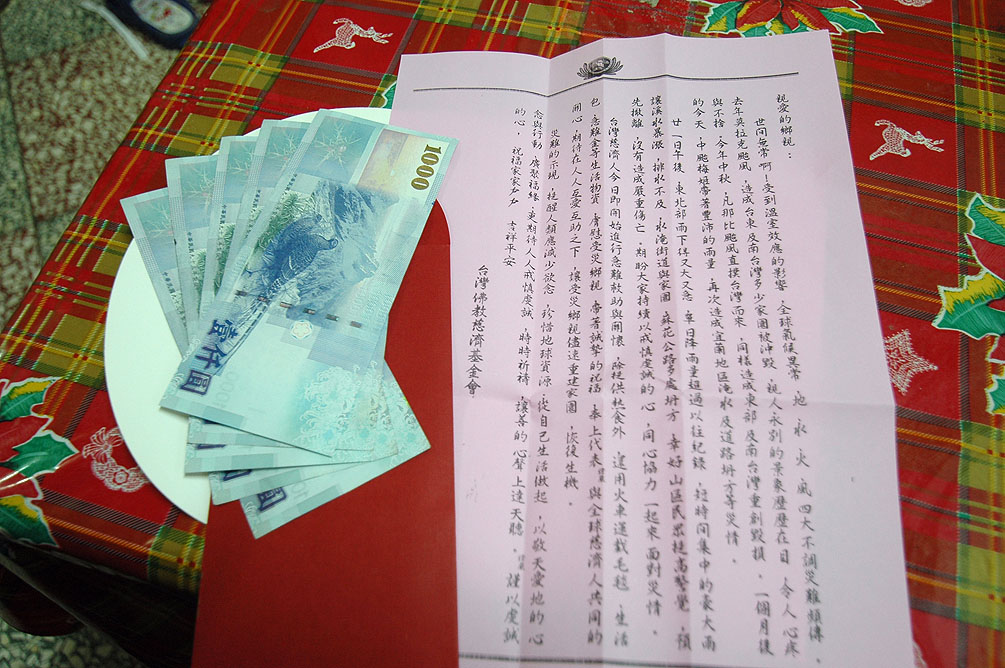 1000
壹仟圓
圓
親愛的鄉親：
世間無常啊！受到溫室效應的影響，全球氣候異常，地、水、火、風四大不調災難頻傳，
去年莫拉克颱風，造成台東及南台灣多少家園被沖毀，親人永別的景象歷歷在目，令人心疼
與不捨，今年中秋，凡那比颱風直撲台灣而來，同樣造成東部及南台灣重創毀損，一個月後
的今天，中颱梅姬帶著豐沛的雨量，再次造成宜蘭地區淹水及道路坍方等災情。
廿一日午後，東北部雨下得又大又急，單日降雨量超過以往紀錄，短時間集中的豪大雨
讓溪水暴漲，排水不及，水淹街道與家園，蘇花公路多處坍方，幸好山區民眾提高警覺，預
先撤離，沒有造成嚴重傷亡，期盼大家持續以戒慎虔誠的心，同心協力一起來面對災情。
台灣慈濟人今日即開始進行急難救助與關懷，除提供熱食外，運用火車運載毛毯、生活
包、急難金等生活物資，膚慰受災鄉親，帶著誠摯的祝福，奉上代表與全球慈濟人共同的
關心，期待在人人互愛互助之下，讓受災鄉親儘速重建家園，恢復生機。
災難的示現，提醒人類應減少欲念，珍惜地球資源，從自己生活做起，以敬天愛地的心
念與行動，廣聚福緣，更期待人人戒慎虔誠，時時祈禱，讓善的心聲上達天聽。謹以虔誠
的心，祝福家家戶戶 吉祥平安
台灣佛教慈濟基金會